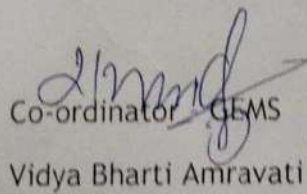 Co-ordinator GEMS
Vidya Bharti Amravati